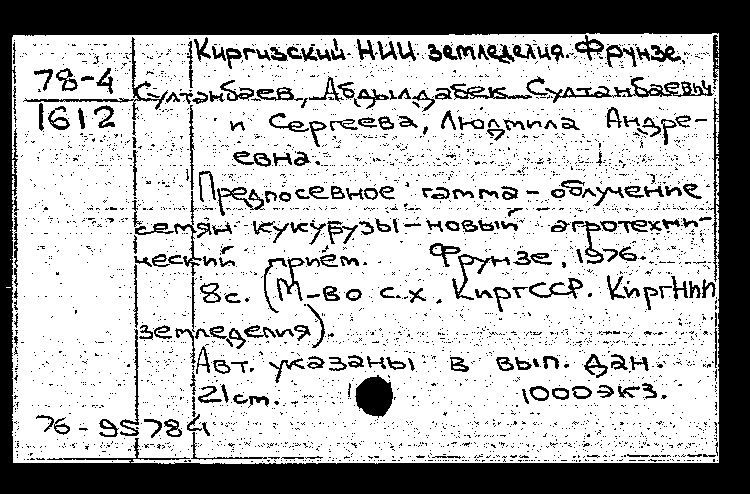 Киргизский НИИ земледелия. Фрунзе.
78-4
1612
Султанбаев, Абдылдабек Султанбаевич
и Сергеева, Людмила Андре-
евна.
Предпосевное гамма-облучение
семян кукурузы-новый агротехни-
ческий приём. Фрунзе, 1976.
8с. (М-во с.х. КиргССР. КиргНИИ
земледелия).
Авт. указаны в вып. дан.
21cm. 1000экз.
76-95784